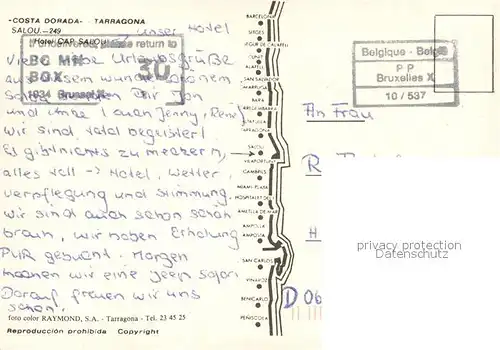 -COSTA DORADA- - TARRAGONA
SALOU.—249
Hotel CAP SALOU
unser Hotel
If undelivered, please return to
BC MN
BOX 30
1934 Brussel X
Viele liebe Urlaubsgrüße
aus diesem wunderschönen
Salou Jan
und Anke (auch Jenny, René)
Wir sind total begeistert!
Es gibt nichts zu meckern,
alles toll -> Hotel, Wetter,
Verpflegung und Stimmung.
Wir sind auch schon schön
braun, wir haben Erholung
PUR gebucht. Morgen
machen wir eine Jeep Safari
Darauf freuen wir uns
schon.
foto color RAYMOND, S.A. - Tarragona - Tel. 23 45 25
Reproducción prohibida Copyright
BARCELONA
SITGES
CUNIT
CALAFELL
SAN SALVADOR
BARA
TORREDEMBARRA
ALTAFULLA
TARRAGONA
SALOU
VILAFORTUNY
CAMBRILS
MIAMI PLAYA
HOSPITALET DEL
AMETLLA DE MAR
AMPOLLA
AMPOSTA
SAN CARLOS
VINAROZ
BENICARLO
PEÑISCOLA
Belgique - België
P P
Bruxelles X
10 / 537
An Frau
R
H
D 06
privacy protection
Datenschutz